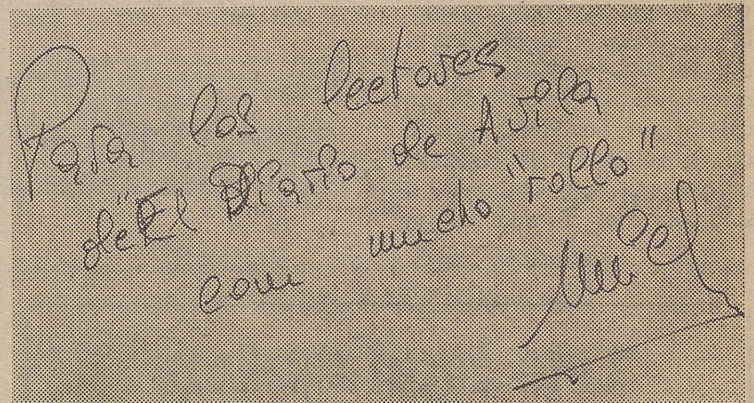 Para los lectores
de "El Diario de Avila
con mucho "rollo"